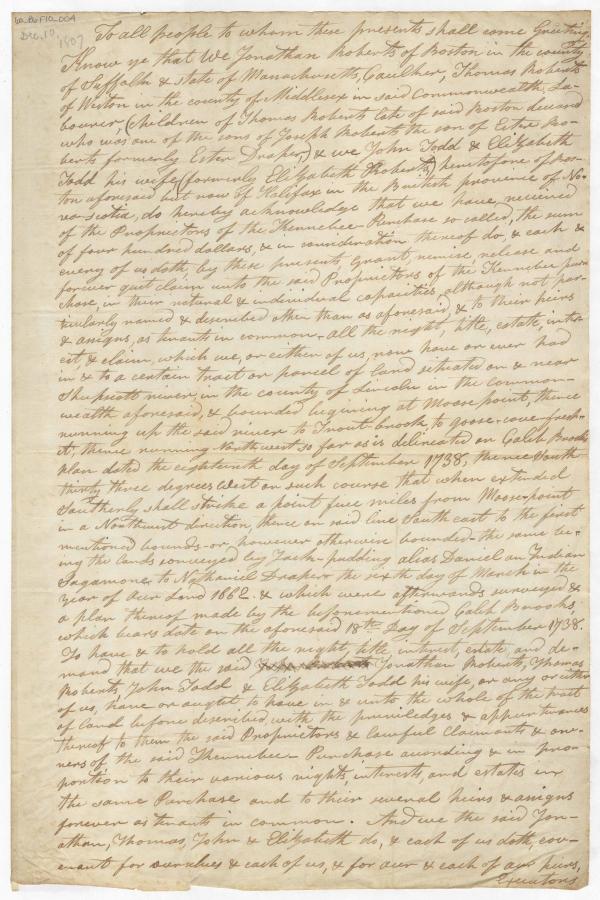 6a_B6F10_004
Dec. 10, 1807
To all people to whom these presents shall come Greeting.
Know ye that We Jonathan Roberts of Boston in the county
of Suffolk & state of Massachusetts, Caulker, Thomas Roberts
of Weston in the county of Middlesex in said Commonwealth, La-
bourer, (children of Thomas Roberts late of said Boston deceasd
who was one of the sons of Joseph Roberts the son of Ester Ro-
berts formerly Ester Draper,) & we John Todd & Elizabeth
Todd his wife (formerly Elizabeth Roberts) heretofore of Bos-
ton aforesaid but now of Halifax in the British province of No-
va-scotia, do hereby acknowledge that we have received
of the Proprietors of the Kennebec-Purchase so called, the sum
of four hundred dollars, & in consideration thereof do, & each &
every of us doth, by these presents, grant, remise, release and
forever quit claim unto the said Proprietors of the Kennebec pur-
chase, in their natural & individual capacities, although not par-
ticularly named & described other than as aforesaid, & to their heirs
& assigns, as tenants in common, all the right, title, estate, inter-
est, & claim, which we, or either of us, now have or ever had
in & to a certain tract or parcel of land situated on & near
Shepscott river, in the county of Lincoln in the Common-
wealth aforesaid, & bounded begining at Moose point, thence
running up the said river to Trout-brook, to goose-cove-fresh-
et; thence running Northwest so far as is delineated on Caleb Brooks
plan dated the eighteenth day of September 1738, thence South
thirty three degrees West on such course that when extended
Southerly shall strike a point five miles from Moose-point
in a Northwest direction, thence on said line South east to the first
mentioned bounds-or however otherwise bounded-the same be-
ing the lands conveyed by Jack-pudding alias Daniel an Indian
Sagamore to Nathaniel Draper the sixth day of March in the
year of our Lord 1662 & which were afterwards surveyed &
a plan thereof made by the beforementioned Caleb Brooks,
which bears date on the aforesaid 18th Day of September 1738.
To have & to hold all the right, title, interest, estate, and de-
mand that we the said Jonathan Roberts, Thomas
Roberts, John Todd & Elizabeth Todd his wife, or any or either
of us, have or ought to have in & unto the whole of the tract
of land before described, with the priviledges & appurtenances
thereof to them the said Proprietors & lawful Claimants & ow-
ners of the said Kennebec-Purchase according & in pro-
portion to their various rights, interests, and estates in
the same Purchase and to their several heirs & assigns
forever as tenants in common. And we the said Jon-
athan, Thomas, John & Elizabeth do, & each of us doth, cov-
enant for ourselves & each of us, & for our & each of our heirs,
Executors